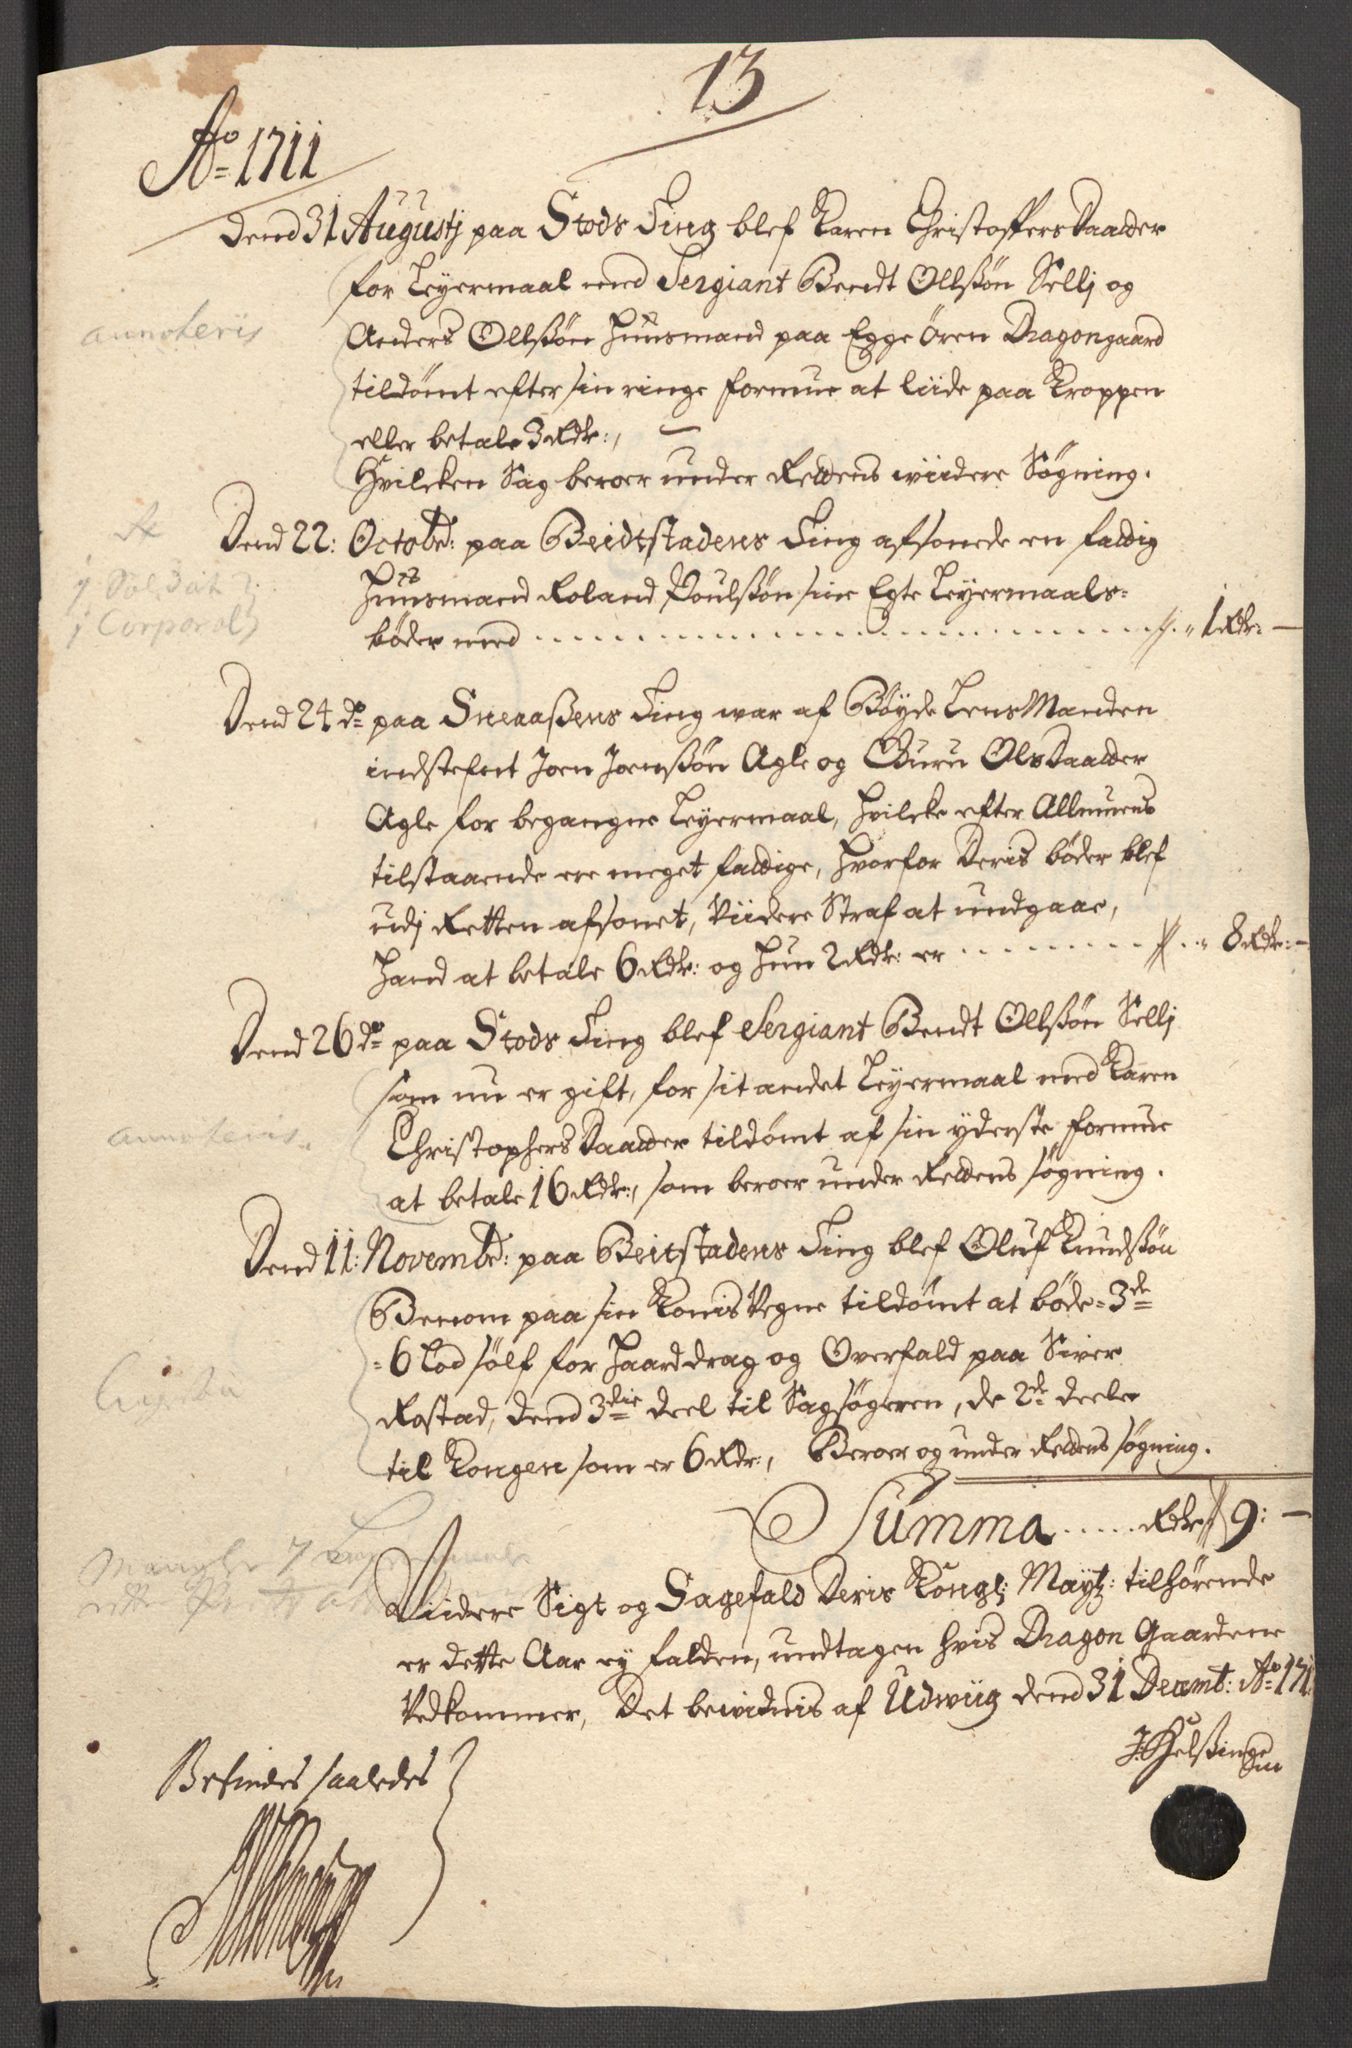 13
Ao 1711
Dend 31 Augustj paa Stods Ting blef Karen Christoffersdaatter
for Leyermaal med Sergiant Bendt Ollssøn Sellj og
Anders Ollssøn Huusmand paa Egge Ören Dragongaard
tildømt efter sin ringe formue at liide paa Kroppen
eller betale 3 Rdr:,
Hvilcken Sag beroer under Rettens wiidere Søgning.
Dend 22: Octobr: paa Beidtstadens Ting afsonede en fattig
Huusmand Roland Poulssøn sine Egte Leyermaals-
bøder med 1 Rdr: —
Dend 24 do paa Sneaassens Ting war af Bøyde Lens Manden
indstefnt Joen Joenssøn Agle og Guru Olsdaatter
Agle for begangne Leyermaal, hvilcke efter Allmuens
tilstaaende ere meget fattige, hvorfor deris bøder blef
udj Retten afsonet, Viidere Straf at undgaae,
Hand at betale 6 Rdr: og Hun 2 Rdr: er 8 Rdr: —
Dend 26 do paa Stods Ting blef Sergiant Bendt Ollssøn Sellj
som nu er gift, for sit andet Leyermaal med Karen
Christophersdaatter tildømt af sin yderste formue
at betale 16 Rdr:, som beroer under Rettens søgning.
Dend 11: Novembr: paa Beitstadens Ting blef Oluf Knudssøn
Benom paa sin Konis Vegne tildømt at bøde 3de
6 Lod sølf for Haarddrag og Overfald paa Siver
Rostad, dend 3die deel til Sagsøgeren, de 2de deele
til Kongen som er 6 Rdr:, Beroer og under Rettens søgning.
Summa Rdr 9: —
Viidere Sigt og Sagefald Deris Kongl: Mayts: tilhørende
er dette Aar ey falden, undtagen hvis Dragon Gaardene
Vedkommer, Det bewidnis af Udwiig dend 31 Decembr: Ao 171
Befindes saaledes
annoteris
1 Soldat
1 Corporal
annoteris